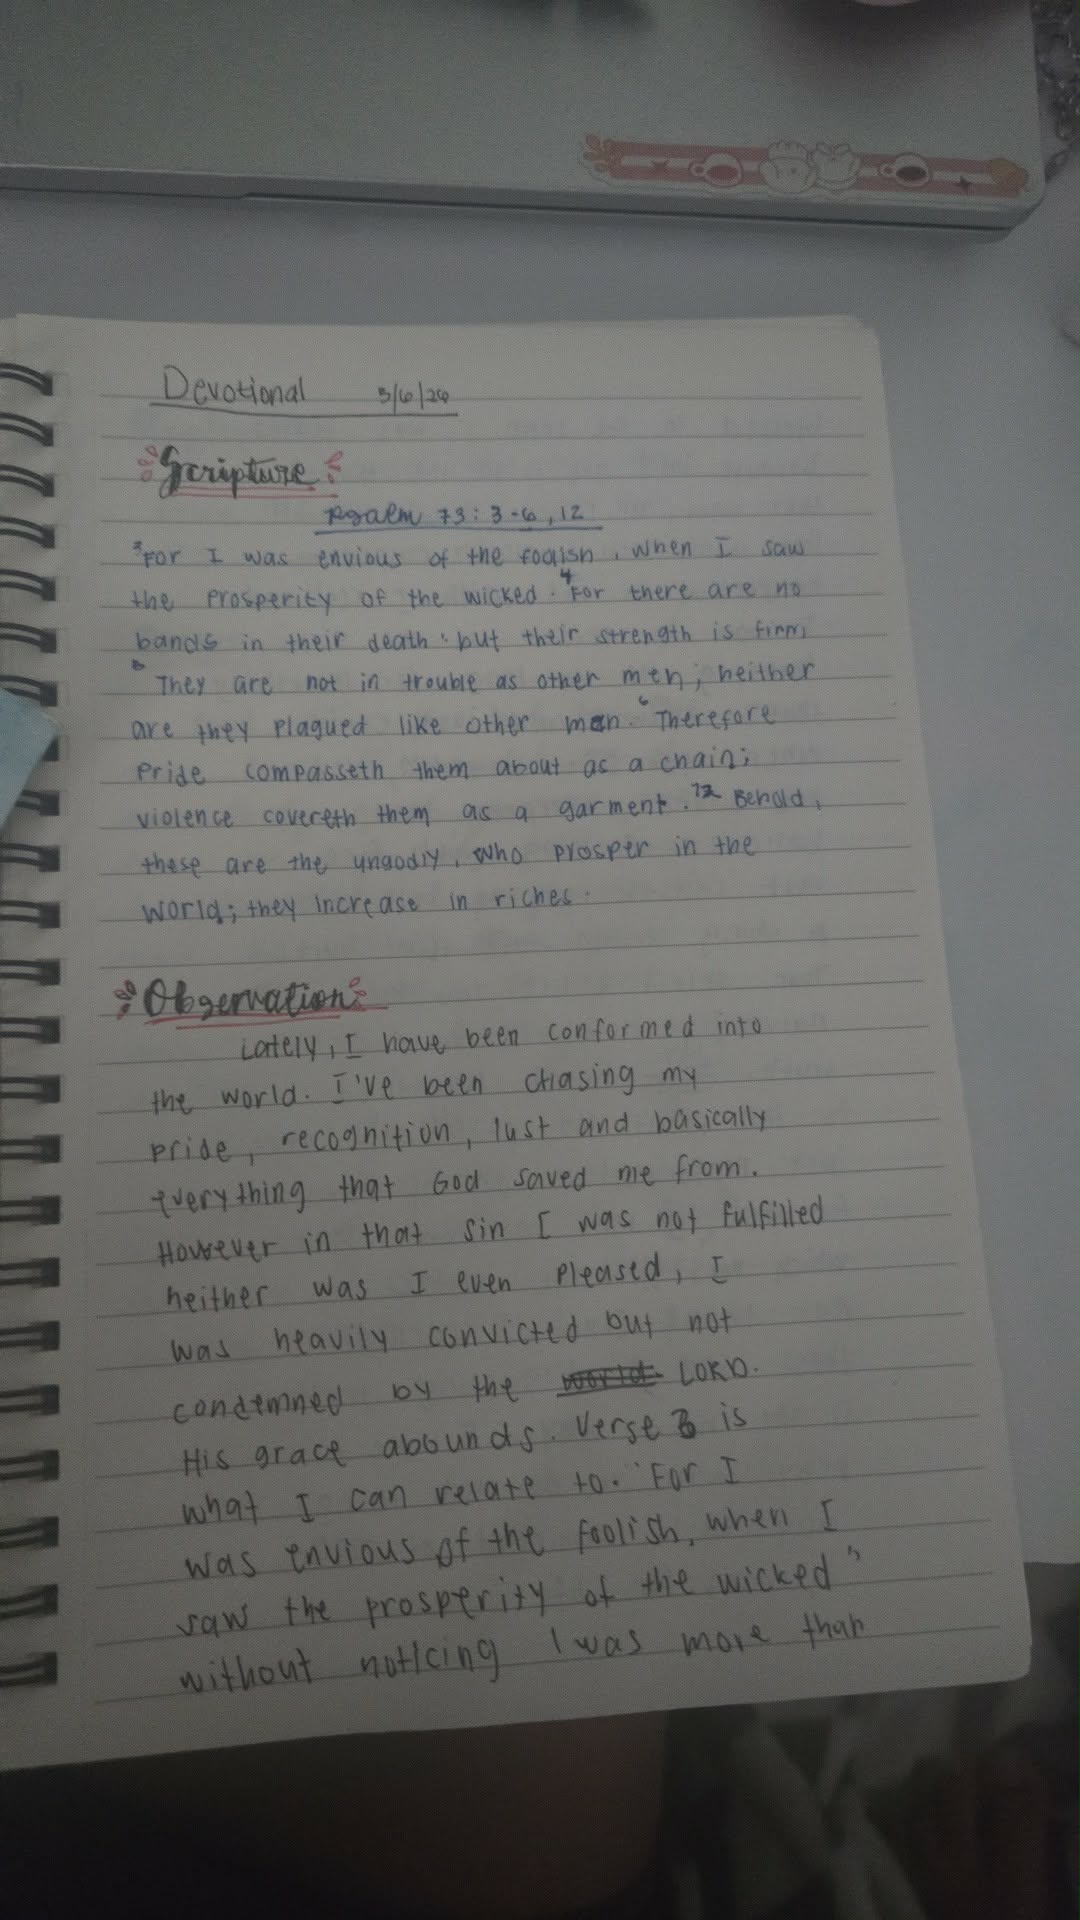 Devotional 3/6/26
Scripture
Psalm 73: 3-6, 12
3 For I was envious of the foolish, when I saw
the prosperity of the wicked. 4 For there are no
bands in their death: but their strength is firm.
5 They are not in trouble as other men; neither
are they plagued like other men. 6 Therefore
pride compasseth them about as a chain;
violence covereth them as a garment. 12 Behold,
these are the ungodly, who prosper in the
world; they increase in riches.
Observation
Lately, I have been conformed into
the world. I've been chasing my
pride, recognition, lust and basically
everything that God saved me from.
However in that sin I was not fulfilled
neither was I even pleased, I
was heavily convicted but not
condemned by the world LORD.
His grace abounds. Verse 3 is
what I can relate to. "For I
was envious of the foolish, when I
saw the prosperity of the wicked"
without noticing I was more than